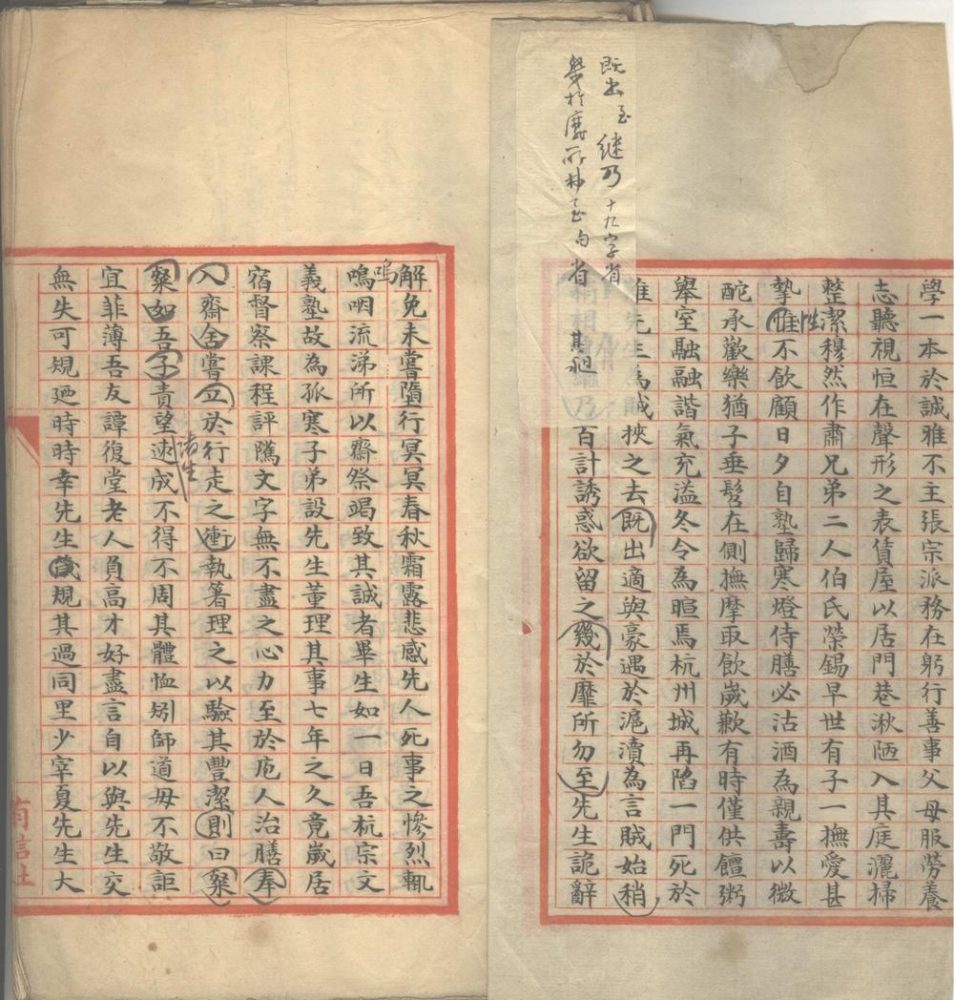 既出至继乃十九字省
幾於靡所抄至句省
學一本於誠雅不主張宗派務在躬行善事父母服勞養
志聽視恒在聲形之表賃屋以居門巷湫陋入其庭灑掃
整潔穆然作肅兄弟二人伯氏榮錫早世有子一撫愛甚
摯惟不飲顧日夕自塾歸寒燈侍膳必沽酒為親壽以微
性
酡承歡樂猶子垂髫在側撫摩取飲歲歉有時僅供饘粥
舉室融融諧氣充溢冬令為暄焉杭州城再陷一門死於
難先生為賊挾之去既出適與豪遇於滬瀆為言賊始稍
稍相繼乃百計誘惑欲留之幾於靡所勿至先生詭辭
其祂
解免未嘗隳行冥冥春秋霜露悲感先人死事之慘烈輒
嗚
鳴咽流涕所以齋祭竭致其誠者畢生如一日吾杭宗文
義塾故為孤寒子弟設先生董理其事七年之久竟歲居
宿督察課程評騭文字無不盡之心力至於庖人治膳奉
入齋舍嘗立於行走之衝執箸理之以驗其豐潔則曰粲
粲如吾子責望速成不得不周其體恤矧師道毋不敬詎
諸生
宜菲薄吾友譚復堂老人負高才好盡言自以與先生交
無失可規廼時時幸先生儀規其過同里少宰夏先生大